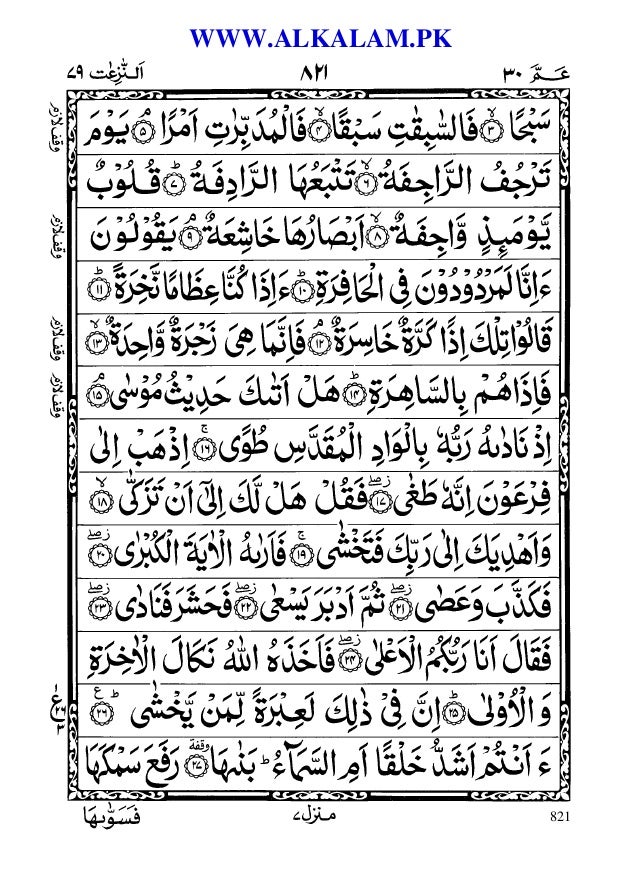 WWW.ALKALAM.PK
عـمّ ٣٠ ٨٢١ اَلنّٰزِعٰت ٧٩
سَبْحًا ۙ﴿٣﴾ فَالسّٰبِقٰتِ سَبْقًا ۙ﴿٤﴾ فَالْمُدَبِّرٰتِ اَمْرًا ۘ﴿٥﴾ يَوْمَ
وقف لازم
تَرْجُفُ الرَّاجِفَةُ ۙ﴿٦﴾ تَتْبَعُهَا الرَّادِفَةُ ؕ﴿٧﴾ قُلُوْبٌ
يَّوْمَئِذٍ وَّاجِفَةٌ ۙ﴿٨﴾ اَبْصَارُهَا خَاشِعَةٌ ۘ﴿٩﴾ يَقُوْلُوْنَ
وقف لازم
ءَاِنَّا لَمَرْدُوْدُوْنَ فِى الْحَافِرَةِ ؕ﴿١٠﴾ ءَاِذَا كُنَّا عِظَامًا نَّخِرَةً ؕ﴿١١﴾
قَالُوْا تِلْكَ اِذًا كَرَّةٌ خَاسِرَةٌ ۘ﴿١٢﴾ فَاِنَّمَا هِىَ زَجْرَةٌ وَّاحِدَةٌ ۙ﴿١٣﴾
وقف لازم
فَاِذَا هُمْ بِالسَّاهِرَةِ ؕ﴿١٤﴾ هَلْ اَتٰىكَ حَدِيْثُ مُوْسٰى ۘ﴿١٥﴾
وقف لازم
اِذْ نَادٰىهُ رَبُّهٗ بِالْوَادِ الْمُقَدَّسِ طُوًى ۚ﴿١٦﴾ اِذْهَبْ اِلٰى
فِرْعَوْنَ اِنَّهٗ طَغٰى ۖ﴿١٧﴾ فَقُلْ هَلْ لَّكَ اِلٰٓى اَنْ تَزَكّٰى ۙ﴿١٨﴾
وَاَهْدِيَكَ اِلٰى رَبِّكَ فَتَخْشٰى ۚ﴿١٩﴾ فَاَرٰىهُ الْاٰيَةَ الْكُبْرٰى ۖ﴿٢٠﴾
فَكَذَّبَ وَعَصٰى ۖ﴿٢١﴾ ثُمَّ اَدْبَرَ يَسْعٰى ۖ﴿٢٢﴾ فَحَشَرَ فَنَادٰى ۖ﴿٢٣﴾
فَقَالَ اَنَا رَبُّكُمُ الْاَعْلٰى ۖ﴿٢٤﴾ فَاَخَذَهُ اللّٰهُ نَكَالَ الْاٰخِرَةِ
وَالْاُوْلٰى ؕ﴿٢٥﴾ اِنَّ فِىْ ذٰلِكَ لَعِبْرَةً لِّمَنْ يَّخْشٰى ؕ﴿٢٦﴾
ع ٢٦ ٣
ءَاَنْتُمْ اَشَدُّ خَلْقًا اَمِ السَّمَآءُ ؕ بَنٰىهَا ﴿٢٧﴾ وقفة رَفَعَ سَمْكَهَا
821 منزل ٧ فَسَوّٰىهَا